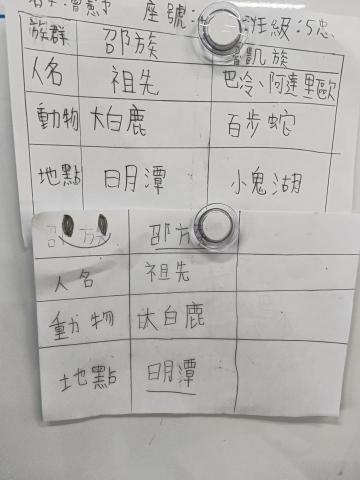 座號: 班級:5忠
族群 邵族 凱族
人名 祖先 巴冷、阿達里歐
動物 大白鹿 百步蛇
地點 日月潭 小鬼湖
邵族 邵方
人名 祖先
動物 大白鹿
地點 日月潭